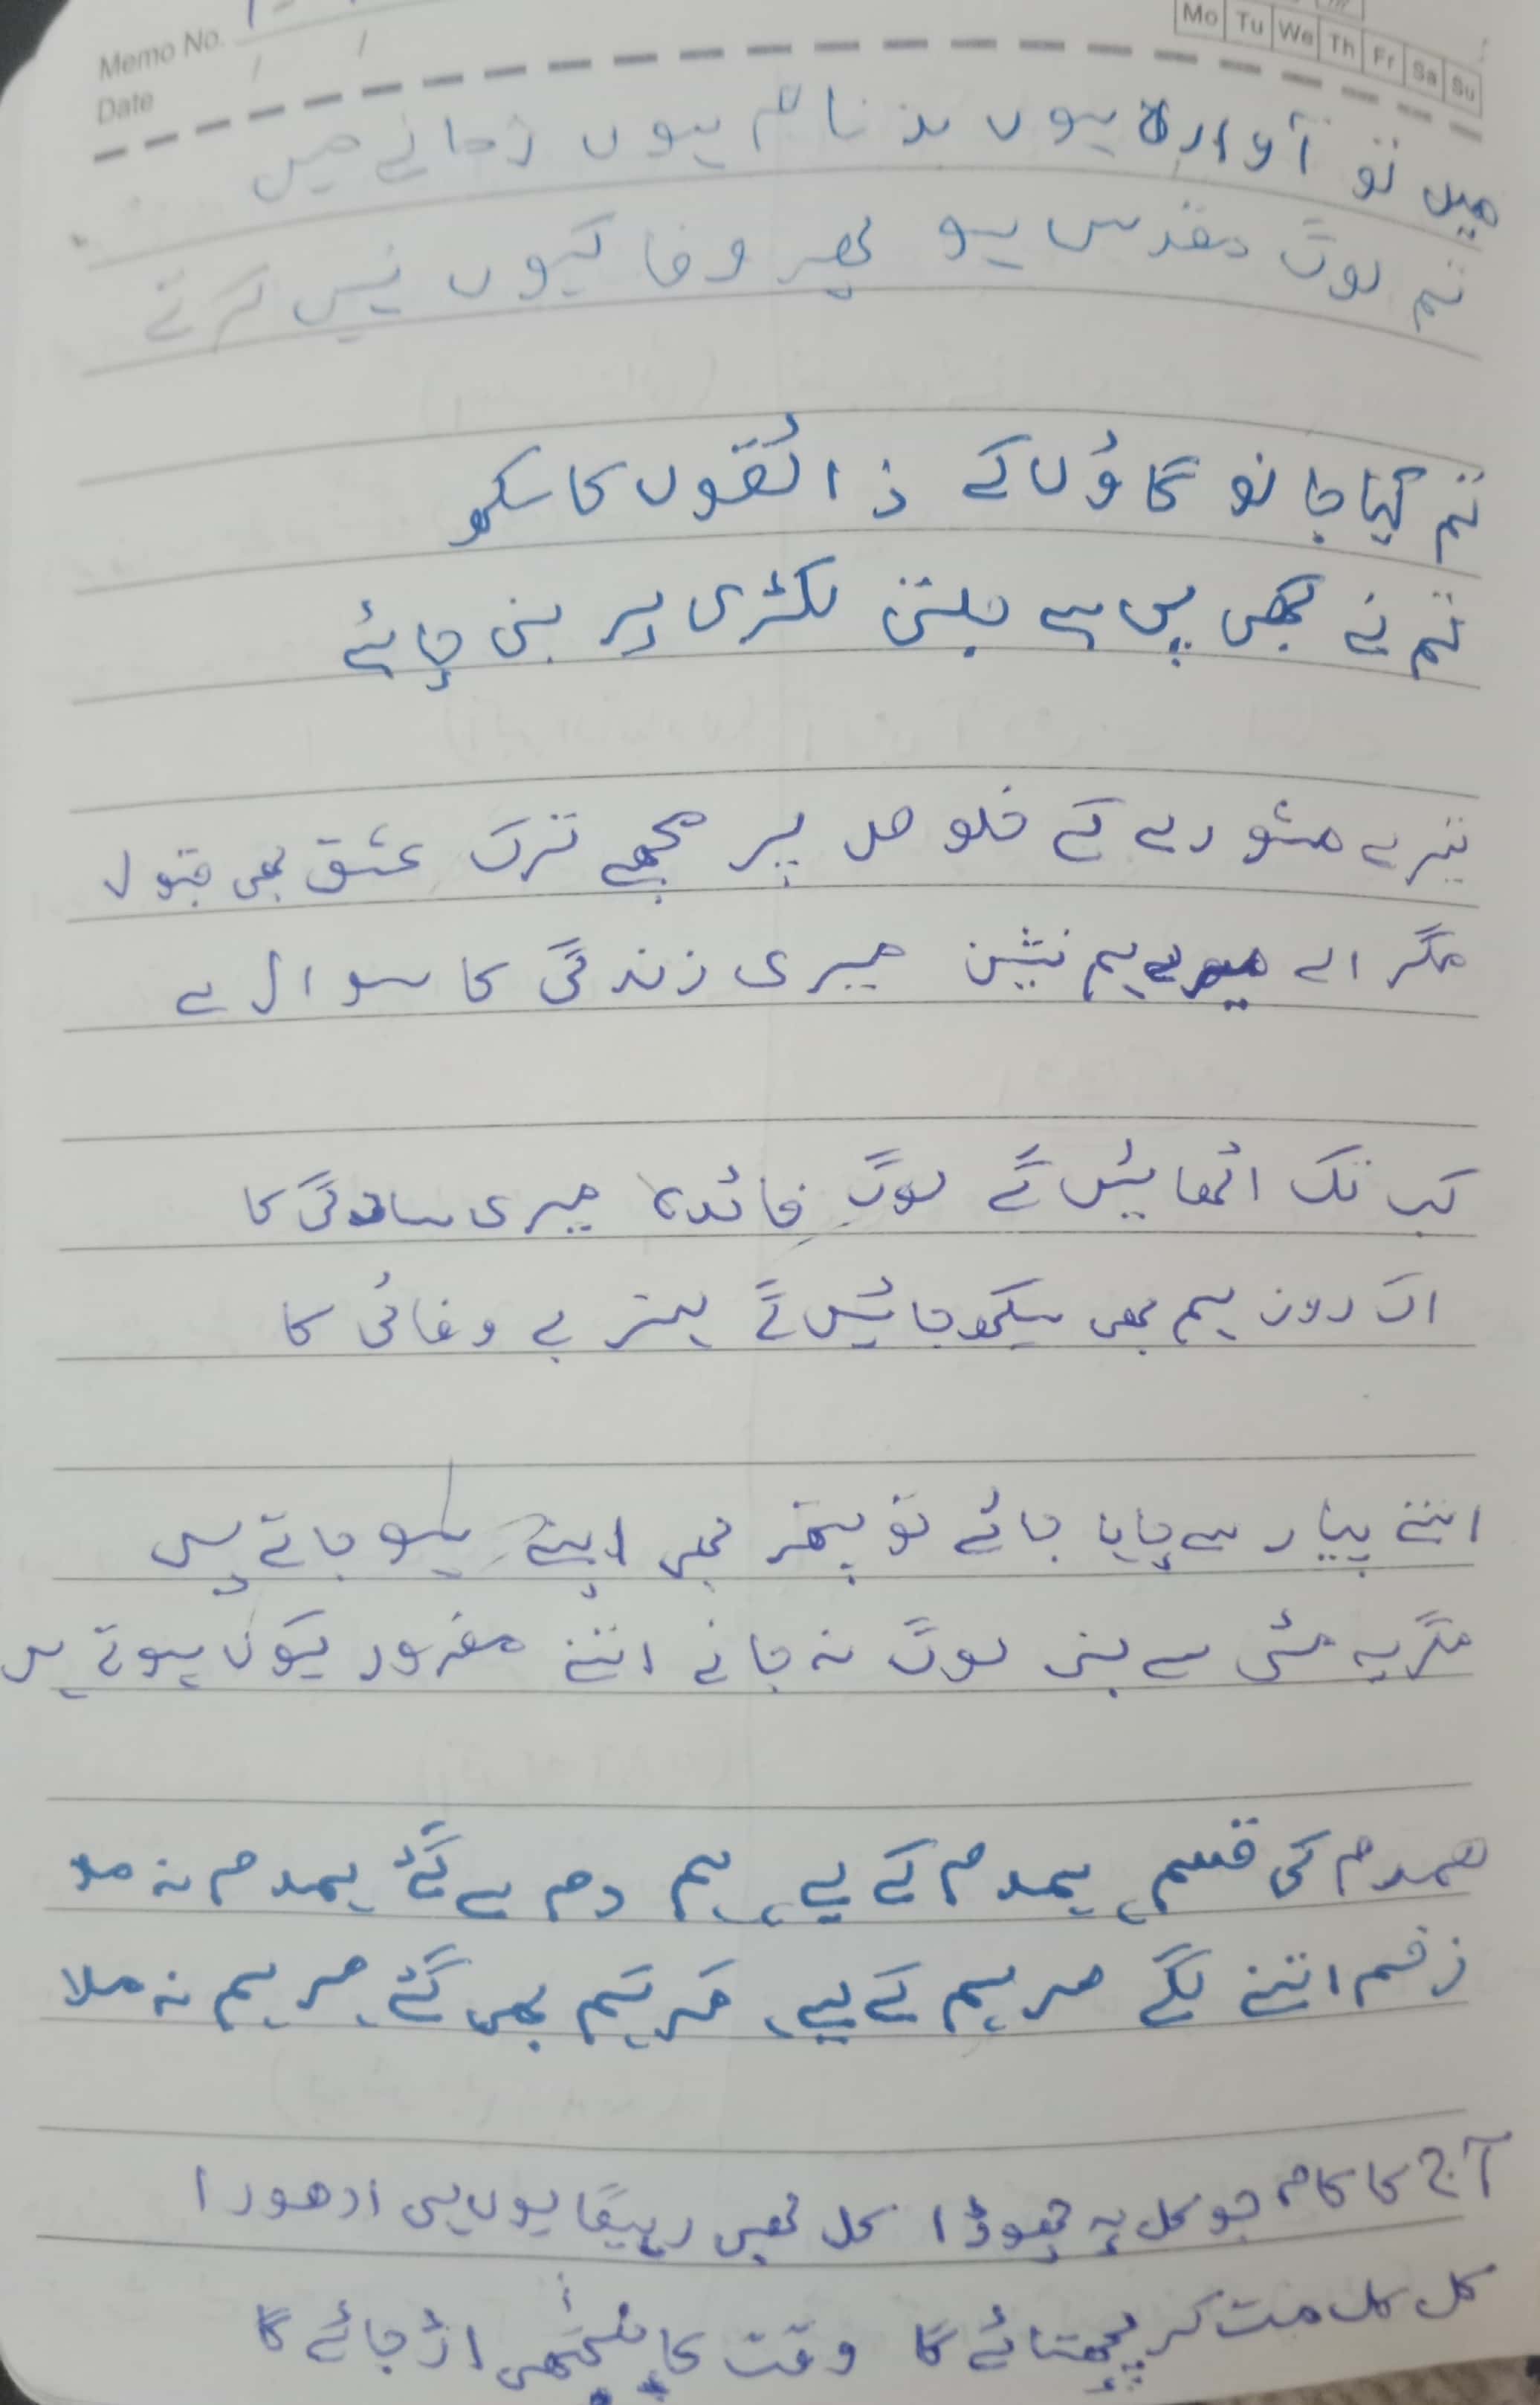 Memo No.
Date / /
Mo Tu We Th Fr Sa Su
میں تو آوارہ ہوں بدنام ہوں زمانے میں
تم لوگ مقدس ہو پھر وفا کیوں نہیں کرتے
تم کیا جانو گاؤں کے ذائقوں کا سکھ
تم نے کبھی پی ہے جلتی لکڑی پر بنی چائے
تیرے مشورے کے خلوص پر مجھے ترک عشق بھی قبول
مگر اے میرے ہم نشین میری زندگی کا سوال ہے
کب تک اٹھائیں گے لوگ فائدہ میری سادگی کا
اک روز ہم بھی سیکھ جائیں گے ہنر بے وفائی کا
اتنے پیار سے چاہا جائے تو پتھر بھی اپنے ہو جاتے ہیں
مگر یہ مٹی سے بنے لوگ نہ جانے اتنے مغرور کیوں ہوتے ہیں
ھمدم کی قسم، ہمدم کے لیے، ہم دم سے گئے ہمدم نہ ملا
زخم اتنے لگے مرہم کے لیے، مرہم بھی گئے، مرہم نہ ملا
آج کا کام جو کل پہ چھوڑا کل بھی رہیگا یوں ہی ادھورا
کل کل مت کر پچھتائے گا وقت کا پنچھی اڑ جائے گا